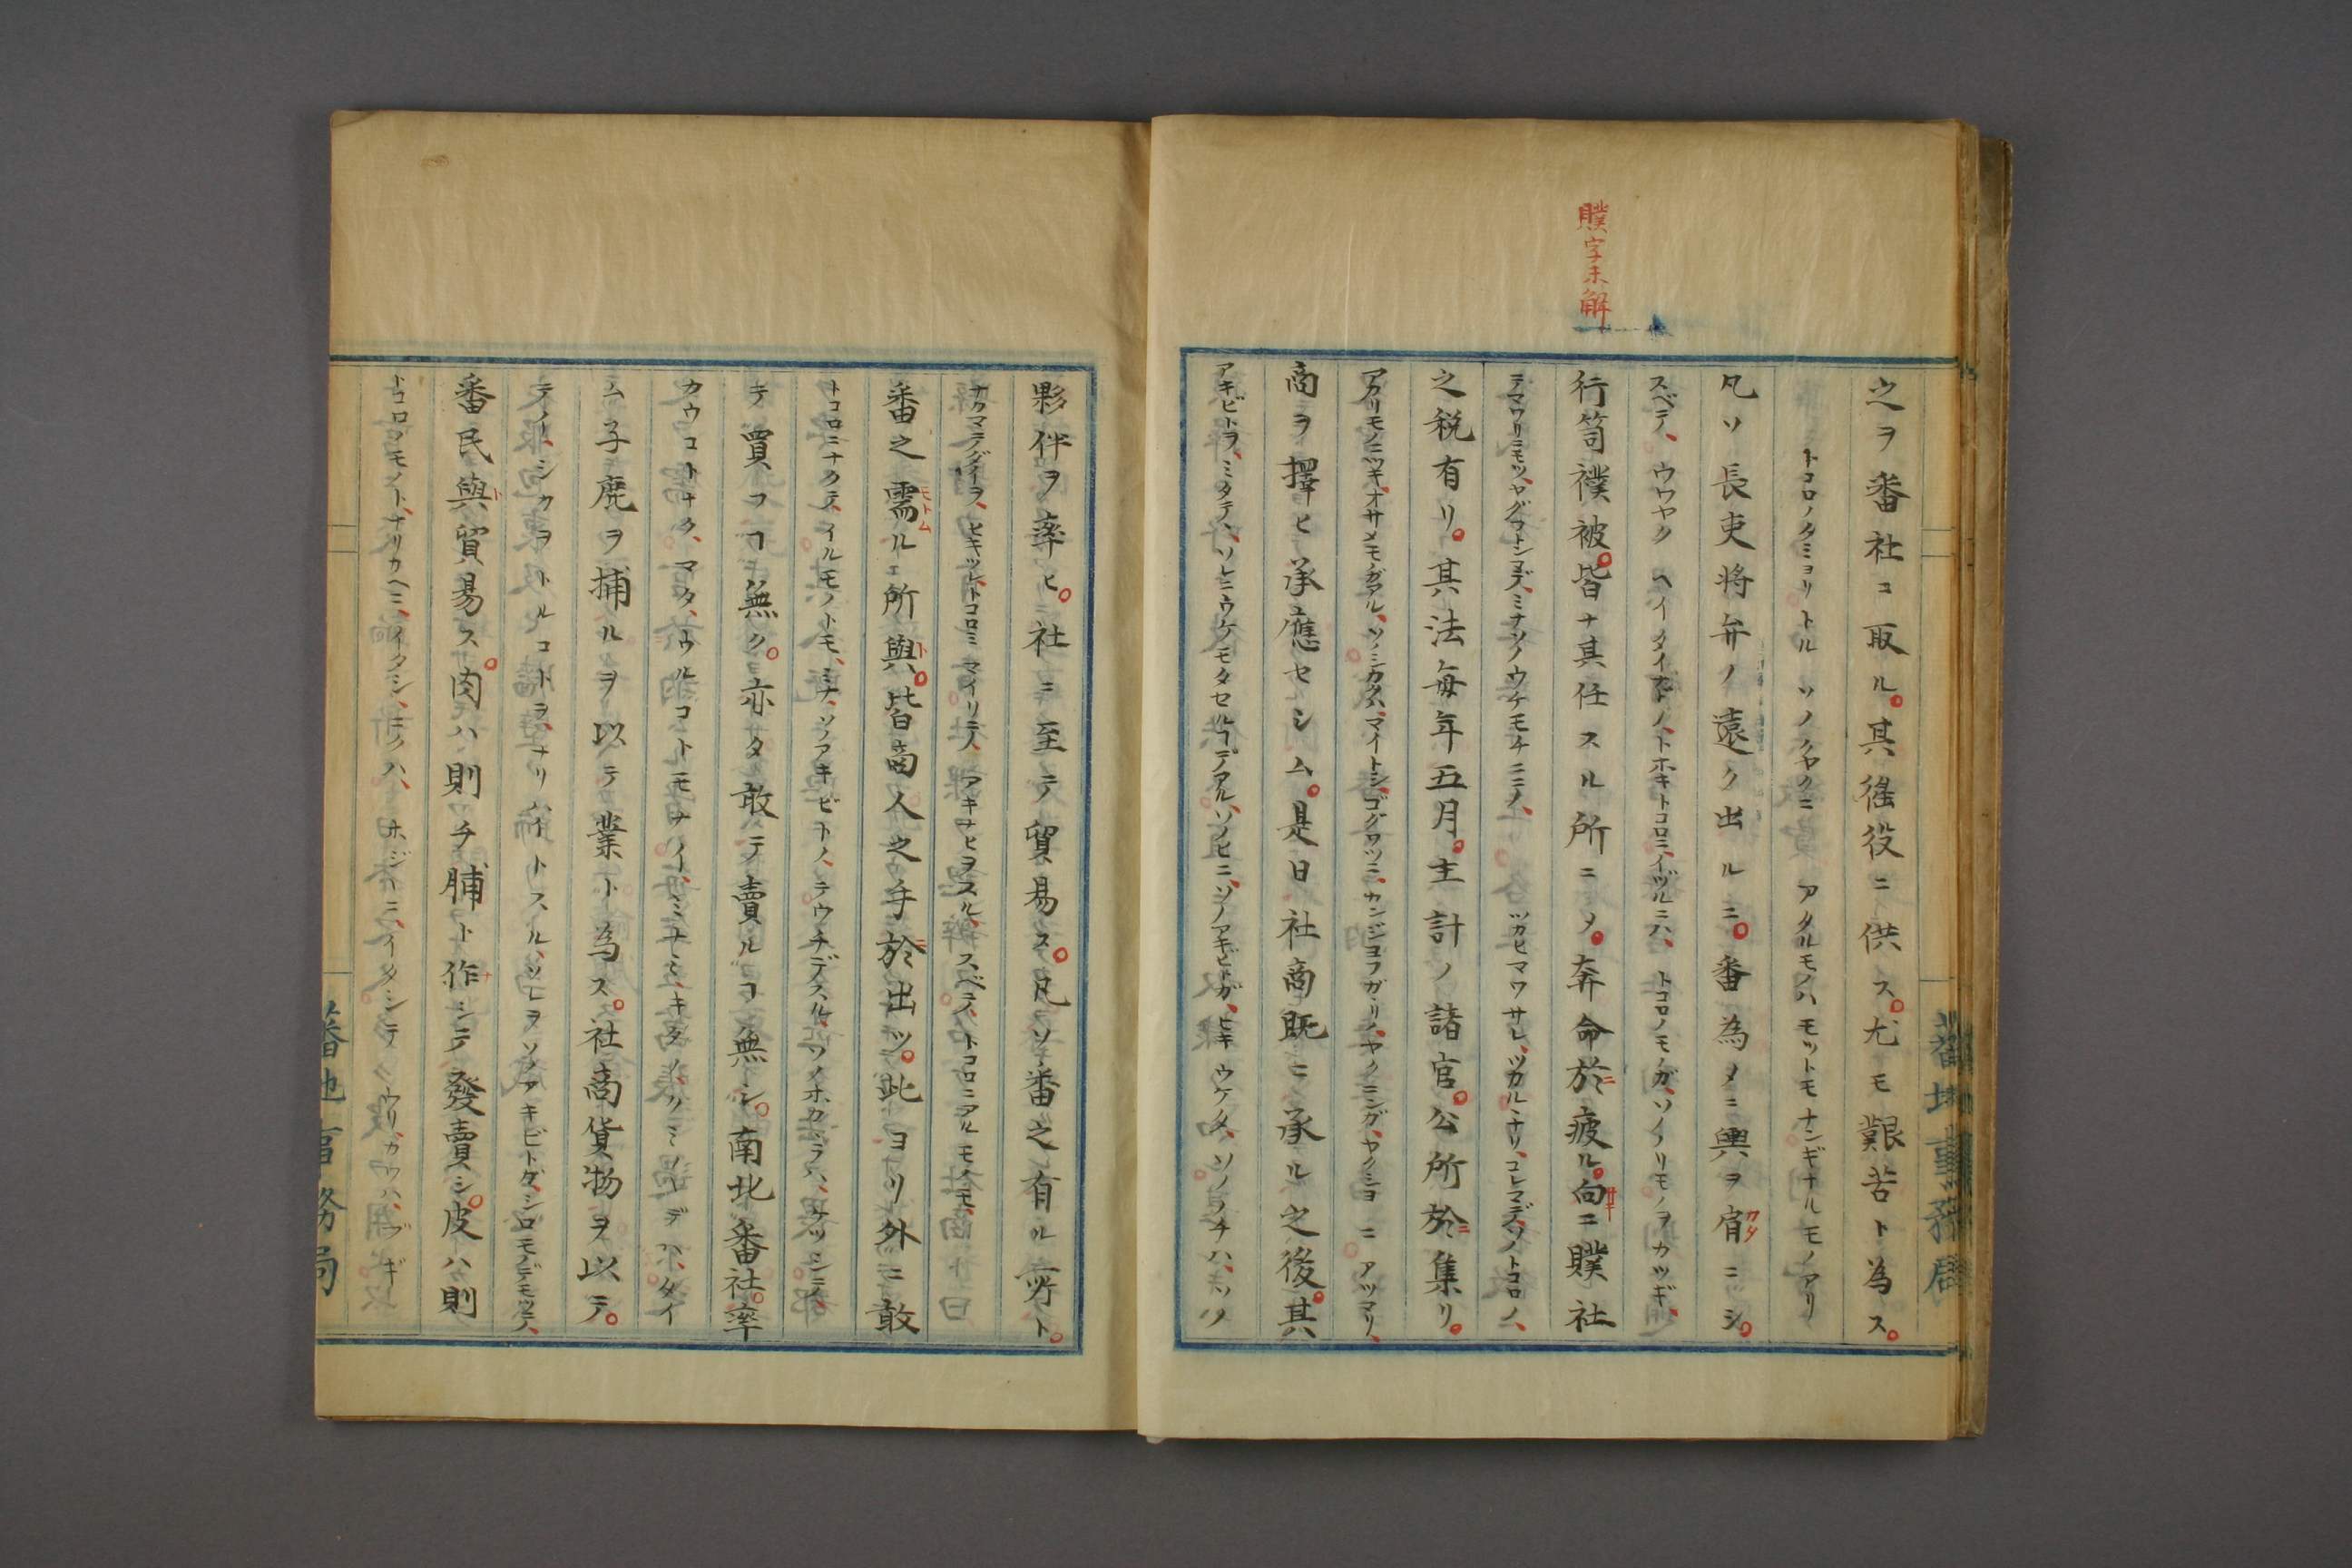 贌字未解
之ヲ番社ニ取ル。其徭役ニ供ス。尤モ艱苦ト為ス。
トコロノタミヨリトル ソノクヤクニ アタルモノハ、モットモナンギナルモノアリ
凡ソ長吏将弁ノ遠ク出ルニ。番為メニ輿ヲ肩ニシ。
スベテ、ウヤク ヘイタイナドノ、トホキトコロニ、イヅルニハ、トコロノモノガ、ソノノリモノヲカツギ、
行笥襆被。皆ナ其任スル所ニメ。奔命於疲ル。向ニ贌社
之税有リ。其法毎年五月。主計ノ諸官。公所於集リ。
商ヲ擇ヒ承應セシム。是日社商既ニ承ル之後。其
アキビトヲ、ミタテ、ソレニウケモタセルコデアル、ソノヒニ、ソノアキビトガ、ヒキウケタ、ソノノチハ、ソノ
夥伴ヲ率ヒ。社ニ至テ貿易ス。凡ソ番之有ル所ト。
番之需ル所與。皆商人之手於出ツ。此ヨリ外ニ敢
トコロニナクテ、イルモノトモ、ミナ、ソノアキビトノ、テウチデスル、ソノホカカラハ、ケツシテ、
テ買フコ無ク。亦タ敢テ賣ルコ無シ。南北番社。率
カウコトナク、マタ、ウルコトモナイ、ミナミ、キタノ、ソノミノレデハ、タイ
ム子鹿ヲ捕ルヲ以テ業ト為ス。社商貨物ヲ以テ。
テノ、シカヲトルコトヲ、ナリハイトスル、ソレヲソノアキビトガ、シロモノデモツテ、
番民與貿易ス。肉ハ則チ脯ト作シテ發賣シ。皮ハ則
トコロノモノト、ナリカヘニ、イタシ、ニクハ、ホジシニ、イタシテ ウリ、カワハ、
蕃地事務局